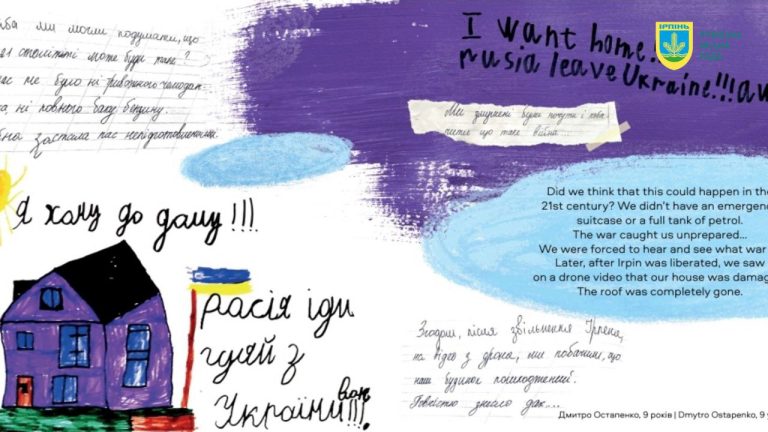 ба ми могли подумати, що
21 столітті може бути таке?
ас не було ні тривожного чемодан
а, ні повного баку бензину.
на застала нас непідготовленими.
Я хочу до дому!!!
расія іди
гуляй з
України вон!!!
I want home!
rusia leave Ukraine!!! aw
ІРПІНЬ
Ми змушені були почути і поба
чити що таке війна...
Did we think that this could happen in the
21st century? We didn't have an emergenc
suitcase or a full tank of petrol.
The war caught us unprepared...
We were forced to hear and see what war
Later, after Irpin was liberated, we saw
on a drone video that our house was damag
The roof was completely gone.
Згодом, після звільнення Ірпеня,
на відео з дрона, ми побачили, що
наш будинок пошкоджений.
Повністю знесло дах....
Дмитро Остапенко, 9 років | Dmytro Ostapenko, 9 y